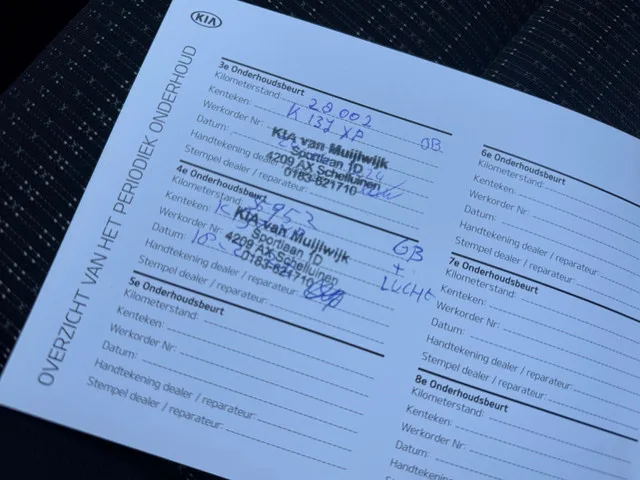 KIA
OVERZICHT VAN HET PERIODIEK ONDERHOUD
3e Onderhoudsbeurt
Kilometerstand: 28002
Kenteken: K 137 XP
GB
Werkorder Nr:
Datum: 24
Handtekening dealer
Stempel dealer / reparateur:
KIA van Muijlwijk
Sportlaan 1D
4209 AX Schelluinen
0183-621710
4e Onderhoudsbeurt
Kilometerstand:
Kenteken: K
Werkorder Nr:
Datum:
Handtekening dealer / reparateur:
Stempel dealer / reparateur:
KIA van Muijlwijk
Sportlaan 1D
4209 AX Schelluinen
0183-621710
GB
+
LUCHt
5e Onderhoudsbeurt
Kilometerstand:
Kenteken:
Werkorder Nr:
Datum:
Handtekening dealer / reparateur:
Stempel dealer / reparateur:
6e Onderhoudsbeurt
Kilometerstand:
Kenteken:
Werkorder Nr:
Datum:
Handtekening dealer / reparateur:
Stempel dealer / reparateur:
7e Onderhoudsbeurt
Kilometerstand:
Kenteken:
Werkorder Nr:
Datum:
Handtekening dealer / reparateur:
Stempel dealer / reparateur:
8e Onderhoudsbeurt
Kilometerstand:
Kenteken:
Werkorder Nr:
Datum:
Handtekening